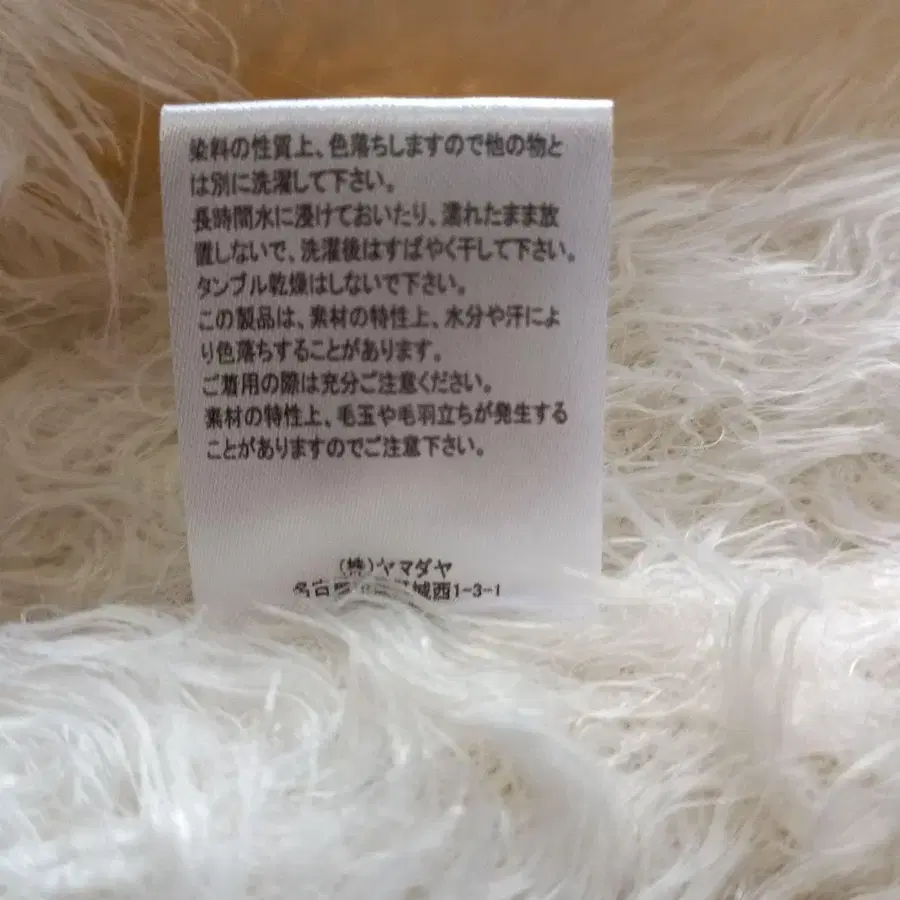 染料の性質上、色落ちしますので他の物と
は別に洗濯して下さい。
長時間水に浸けておいたり、濡れたまま放
置しないで、洗濯後はすばやく干して下さい。
タンブル乾燥はしないで下さい。
この製品は、素材の特性上、水分や汗によ
り色落ちすることがあります。
ご着用の際は充分ご注意ください。
素材の特性上、毛玉や毛羽立ちが発生する
ことがありますのでご注意下さい。
(株)ヤマダヤ
名古 城西1-3-1